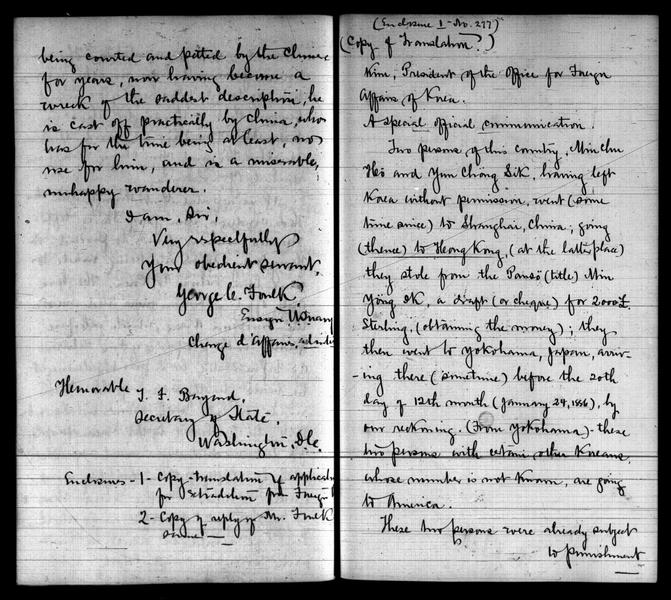 being courted and petted by the Chinese
for years, now having become a
wreck of the saddest description, he
is cast off practically by China, who
has for the time being at least, no
use for him, and is a miserable,
unhappy wanderer.
I am, Sir,
Very respectfully
Your obedient servant,
George C. Foulk,
Ensign, U.S. Navy
Chargé d'Affaires, ad int
Honorable T. F. Bayard,
Secretary of State,
Washington, D.C.
Enclosures - 1 - Copy-translation of applicatio
for extradition from Foreign
2 - Copy of reply of Mr. Foulk
same
(Enclosure 1 - No. 277)
(Copy of Translation.)
Kim, President of the Office for Foreign
Affairs of Korea.
A special official communication.
Two persons of this country, Min Chu
Ho and Yun Chong Sik, having left
Korea without permission, went (some
time since) to Shanghai, China; going
(thence) to Hong Kong, (at the latter place)
they stole from the Pansó (title) Min
Yöng Ik, a draft (or cheque) for 2000£
Sterling, (obtaining the money); they
then went to Yokohama, Japan, arriv-
ing there (sometime) before the 20th
day of 12th month (January 24, 1886), by
our reckoning. (From Yokohama) these
two persons with certain other Koreans,
whose number is not known, are going
to America.
These two persons were already subject
to punishment